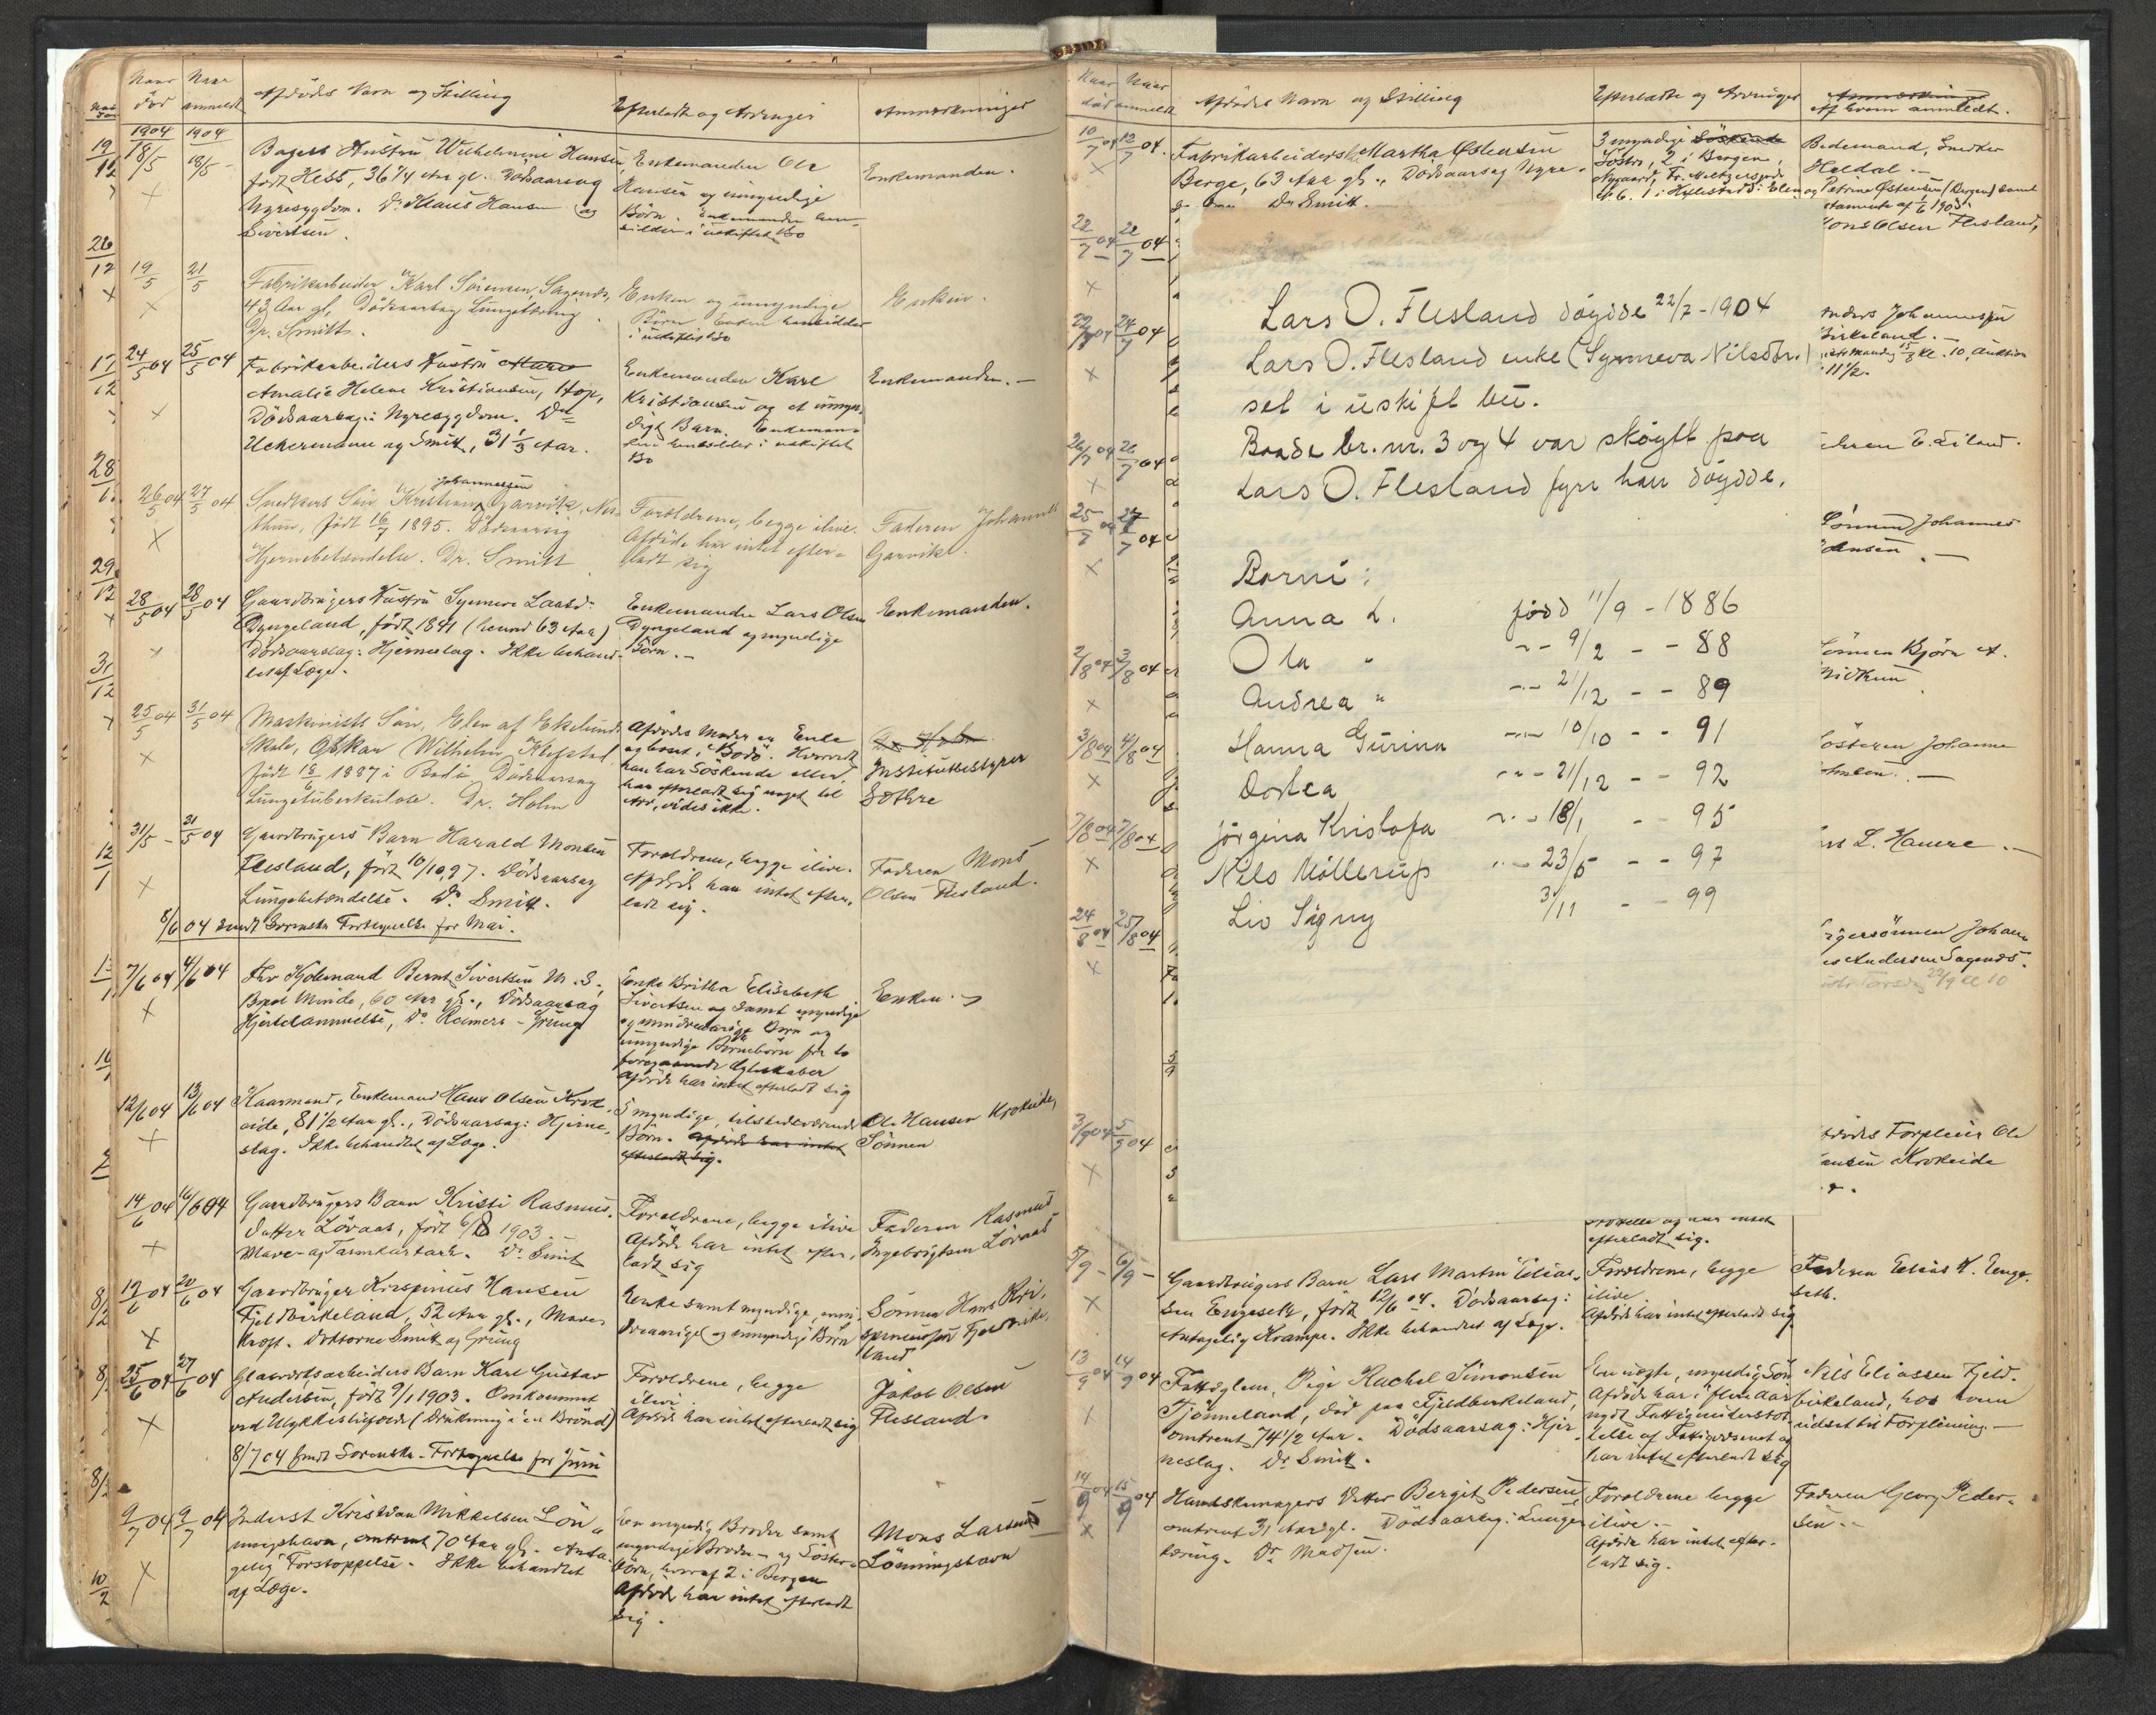 Naar død
Naar anmeldt
Afdødes Navn og Stilling
Efterladte og Arvinger
Anmærkninger
1904 1904
18/5 18/5 -
Bagers Hustru Wilhelmine Hansen,
født Hess, 36 3/4 Aar gl. Dødsaarsag
Nyresygdom. Dr. Klaus Hansen og
Sivertsen.
Enkemanden Ole
Hansen og umyndige
Børn.
Enkemanden.
19/5 21/5
Fabrikarbeider Karl Sørensen, Sagende,
43 Aar gl. Dødsaarsag Lungetæring.
Dr. Smitt.
Enken og umyndige
Børn Enken hensidder
i uskiftet Bo
Enken.
24/5 04 25/5 04
Fabrikarbeiders Hustru
Amalie Helene Kristiansen, Hop,
Dødsaarsag: Nyresygdom. Dr
Uchermann og Smitt, 31 1/3 Aar.
Enkemanden Karl
Kristiansen og et umyn-
digt Barn. Enkeman-
den hensidder i uskiftet
Bo
Enkemanden. -
26/5 04 27/5 04
Johannessen
Snedkers Søn Kristian Garvik, Nes-
thun, født 16/7 1895. Dødsaarsag
Hjernebetændelse. Dr. Smitt
Forældrene, begge ilive.
Afdøde har intet efter-
ladt sig
Faderen Johannes
Garvik.
28/5 04 28/5 04
Gaardbrugers Hustru Synneve Larsd.
Dyngeland, født 1841 (henved 63 Aar)
Dødsaarsag: Hjerneslag. Ikke behand-
let af Læge.
Enkemanden Lars Olsen
Dyngeland og myndige
Børn. -
Enkemanden.
25/5 04 31/5 04
Maskinists Søn, Elev af Ekelunds
Skole, Oskar Wilhelm Klefstad,
født 18/6 1887 i Bodø. Dødsaarsag
Lungetuberkulose. Dr. Holm
Afdødes Moder er Enke
og bosat i Bodø. Hvorvidt
han har Søskende eller
har efterladt sig noget til
Arv, vides ikke.
Institutbestyrer
Sothre
31/5 - 31/5 04
Gaardbrugers Barn Harald Monsen
Flesland, født 10/10 97. Dødsaarsag
Lungebetændelse. Dr. Smitt.
Forældrene, begge ilive.
Afdøde har intet efter-
ladt sig.
Faderen Mons
Olsen Flesland.
8/6 04 sendt Sorenskr. Fortegnelse for Mai.
7/6 04 4/6 04
Fhv Kjølemand Bernt Sivertsen M. S.,
Minde, 60 Aar gl., Dødsaarsag
Hjertelammelse, Dr. Reimers - Grung
Enke Britha Elisabeth
Sivertsen og samt myndige
og mindreaarige Børn og
umyndige Børnebørn fra to
foregaaende Ægteskaber
Afdøde har intet efterladt sig
Enken. -
12/6 04 13/6 04
Kaarmand, Enkemand Hans Olsen Krok-
eide, 81 1/2 Aar gl., Dødsaarsag: Hjerne-
slag. Ikke behandlet af Læge.
5 myndige, tilstedeværende
Børn. Afdøde har intet
efterladt sig.
Ole Hansen Krokeide,
Sønnen
14/6 04 16/6 04
Gaardbrugers Barn Kristi Rasmus-
datter Løvaas, født 6/8 1903. -
Mave- og Tarmkatarh. Dr. Smitt
Forældrene, begge ilive
Afdøde har intet efter-
ladt sig
Faderen Rasmus
Ingebrigtsen Løvaas
19/6 04 20/6 04
Gaardbruger Krispinus Hansen
Fjeldbirkeland, 52 Aar gl., Mave-
kræft. Doktorne Smitt og Grung
Enke samt myndige, min-
dreaarige og umyndige Børn
Sønnen Hans Kri-
spinussen Fjeldbirke-
land
25/6 04 27/6 04
Glasværksarbeiders Barn Karl Gustav
Andersen, født 9/1 1903. Omkommet
ved Ulykkestilfælde (Drukning i en Brønd)
Forældrene, begge
ilive.
Afdøde har intet efterladt sig
Jakob Olsen
Flesland.
8/7 04 sendt Sorenskr. Fortegnelse for Juni
9/7 04 9/7 04
Inderst Kristian Mikkelsen Løn-
ningshavn, omtrent 70 Aar gl. Anta-
gelig Forstoppelse. Ikke behandlet
af Læge.
En myndig Broder samt
myndige Broder- og Søster-
børn, hvoraf 2 i Bergen
Afdøde har intet efterladt
sig.
Mons Larsen
Lønningshavn
Naar død
Naar anmeldt
Afdødes Navn og Stilling
Efterladte og Arvinger
Anmærkninger
Af hvem anmeldt.
10/7 04 12/7 04.
Fabrikarbeiderske Martha Østensen
Berge, 63 Aar gl., Dødsaarsag Nyre-
Dr Smitt.
3 myndige Søskende
Søstre, 2 i Bergen,
Bedemand, Snedker
Heldal. -
Petrine Østensen (Bergen) samt
tamente af 1/6 1903.
22/7 04 22/7 04
Mons Olsen Flesland,
Lars O. Flesland døydde 22/7 - 1904
Lars O. Flesland enke (Synneva Nilsdtr.)
set i uskift bu.
Baade br. nr. 3 og 4 var skøytt paa
Lars O. Flesland fyrr han døydde.
Borni:
Anna L. fødd 11/9 - 1886
Ola " -"- 9/2 - - 88
Andrea " -"- 21/12 - - 89
Hanna Gurina -"- 10/10 - - 91
Dortea -"- 21/12 - - 92
Jørgina Kristofa -"- 18/1 - - 95
Nils Møllerup -"- 23/5 - - 97
Liv Signy 3/11 - - 99
22/7 04 24/7 04
nders Johannessen
Birkeland. -
Kl. 10, Auktion
11 1/2.
26/7 04 26/7 04
25/7 04 27/7 04
Sønnen Johannes
ansen -
2/8 04 3/8 04
Sønnen Bjørn A.
3/8 04 4/8 04
Søsteren Johanne
7/8 04 7/8 04
rs L. Haukre. -
24/8 04 25/8 04
gersønnen Johan
es Andersen Sagends.
3/9 04 5/9 04
fdødes Forpleier Ole
ansen Krokeide
efterladt sig.
5/9 - 6/9 -
Gaardbrugers Barn Lars Martin Elias-
sen Engeseth, født 12/6 04. Dødsaarsag:
Antagelig Krampe. Ikke behandlet af Læge.
Forældrene, begge
ilive.
Afdøde har intet efterladt sig
Faderen Elias H. Enge-
seth.
13/9 04 14/9 04
Fattiglem, Pige Rachel Simonsen
Tjønneland, død paa Fjeldbirkeland,
omtrent 74 1/2 Aar. Dødsaarsag: Hjer-
neslag. Dr Smitt.
En uægte, myndig Søn
Afdøde har i flere Aar
nydt Fattigunderstøt-
telse af Fattigvæsenet og
har intet efterladt sig
Nils Eliassen Fjeld-
birkeland, hos hvem
udsat til Forpleining. -
14/9 04 15/9 04
Handskemagers Datter Bergit Pedersen,
omtrent 31 Aar gl. Dødsaarsag: Lunge-
tæring. Dr. Madsen.
Forældrene begge
ilive. -
Afdøde har intet efter-
ladt sig.
Faderen Georg Peder-
sen. -